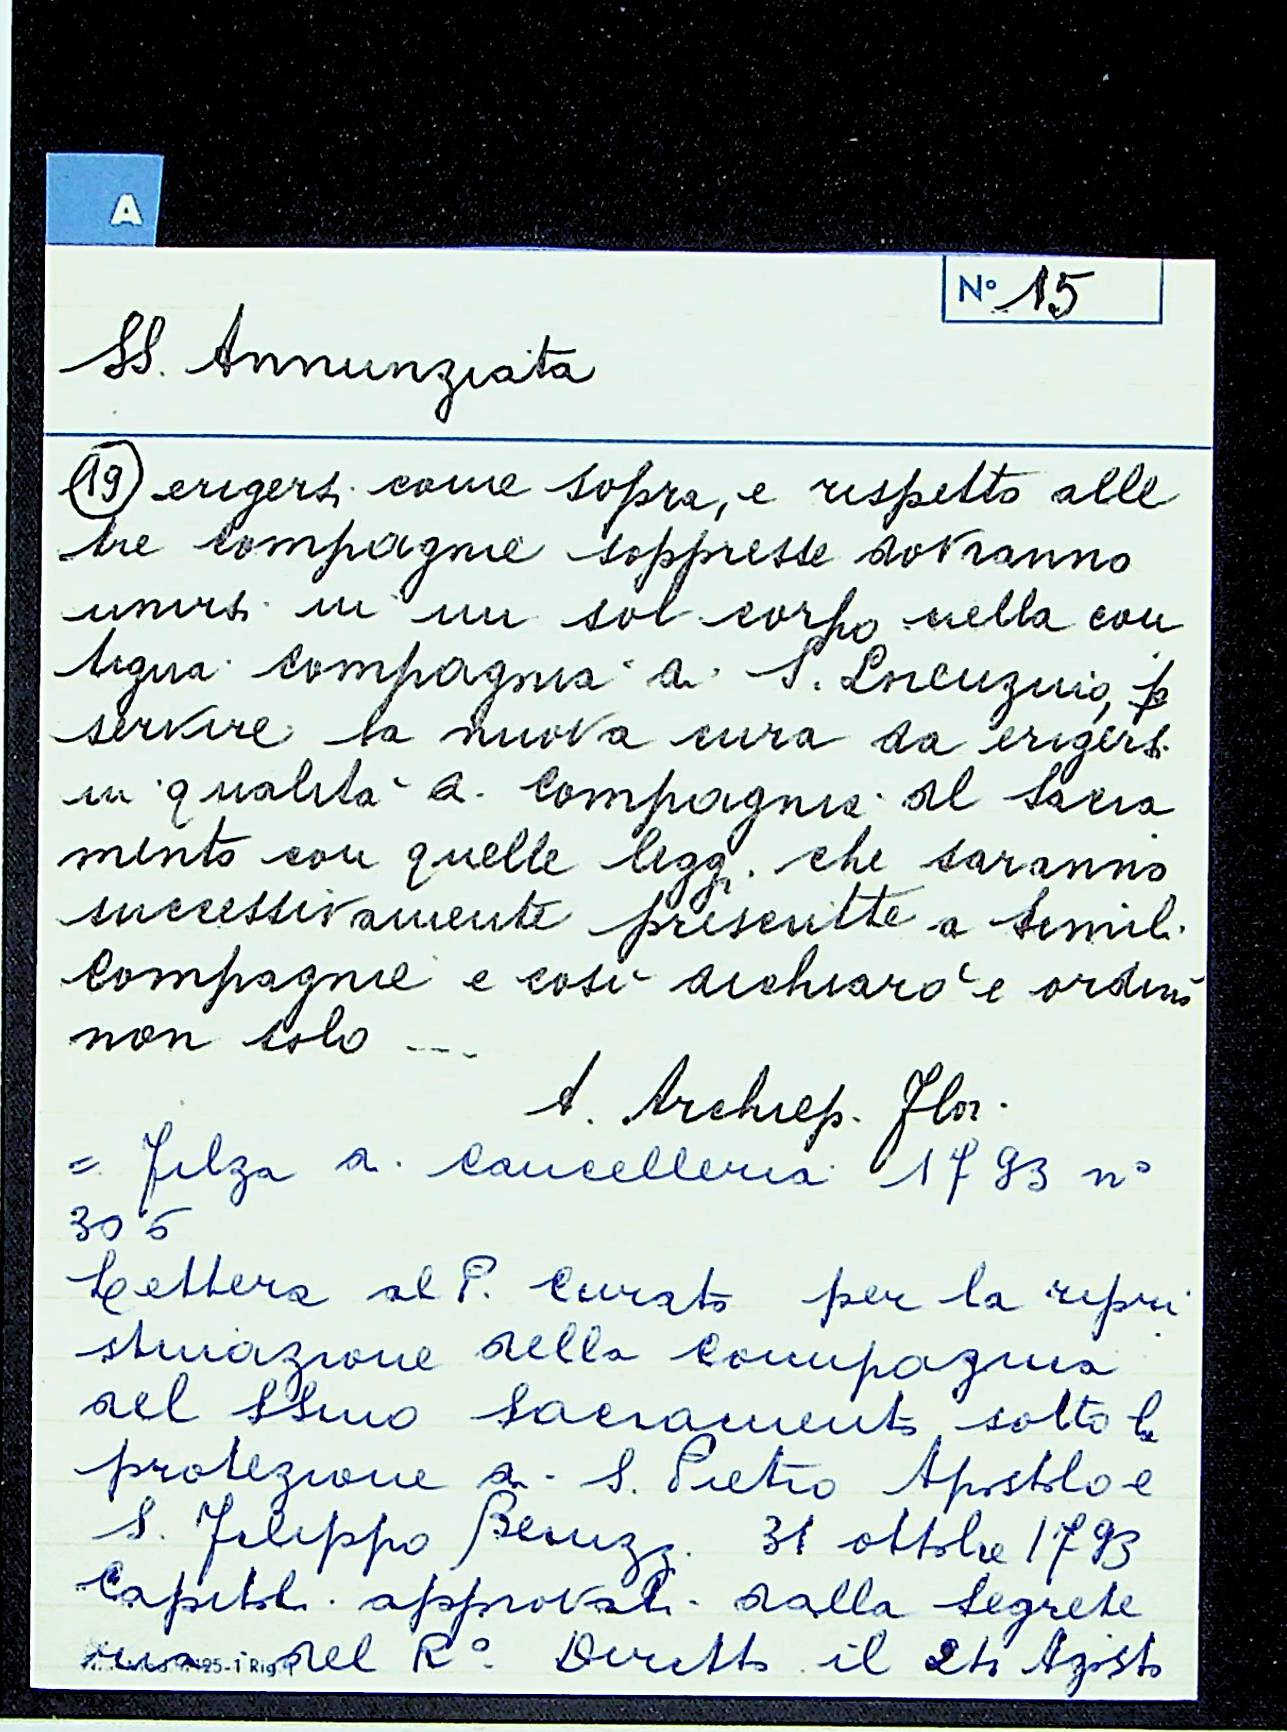 A
N° 15
SS. Annunziata
(19) erigersi come sopra, e rispetto alle
tre Compagnie soppresse dovranno
unirsi in un sol corpo nella con
tigua Compagnia di S. Lorenzino, p
servire la nuova cura da erigersi
in qualità di Compagnia del Sacra
mento con quelle leggi che saranno
successivamente prescritte a simili
Compagnie e così dichiarò e ordinò
non solo ----
A. Archiep. Flor.
= Filza di Cancelleria 1793 n°
305
Lettera al P. Curato per la ripri
stinazione della Compagnia
del SSmo Sacramento sotto la
protezione di S. Pietro Apostolo e
S. Filippo Benizzi 31 ottobre 1793
Capitoli approvati dalla Segrete
ria del R° Diritto il Agosto